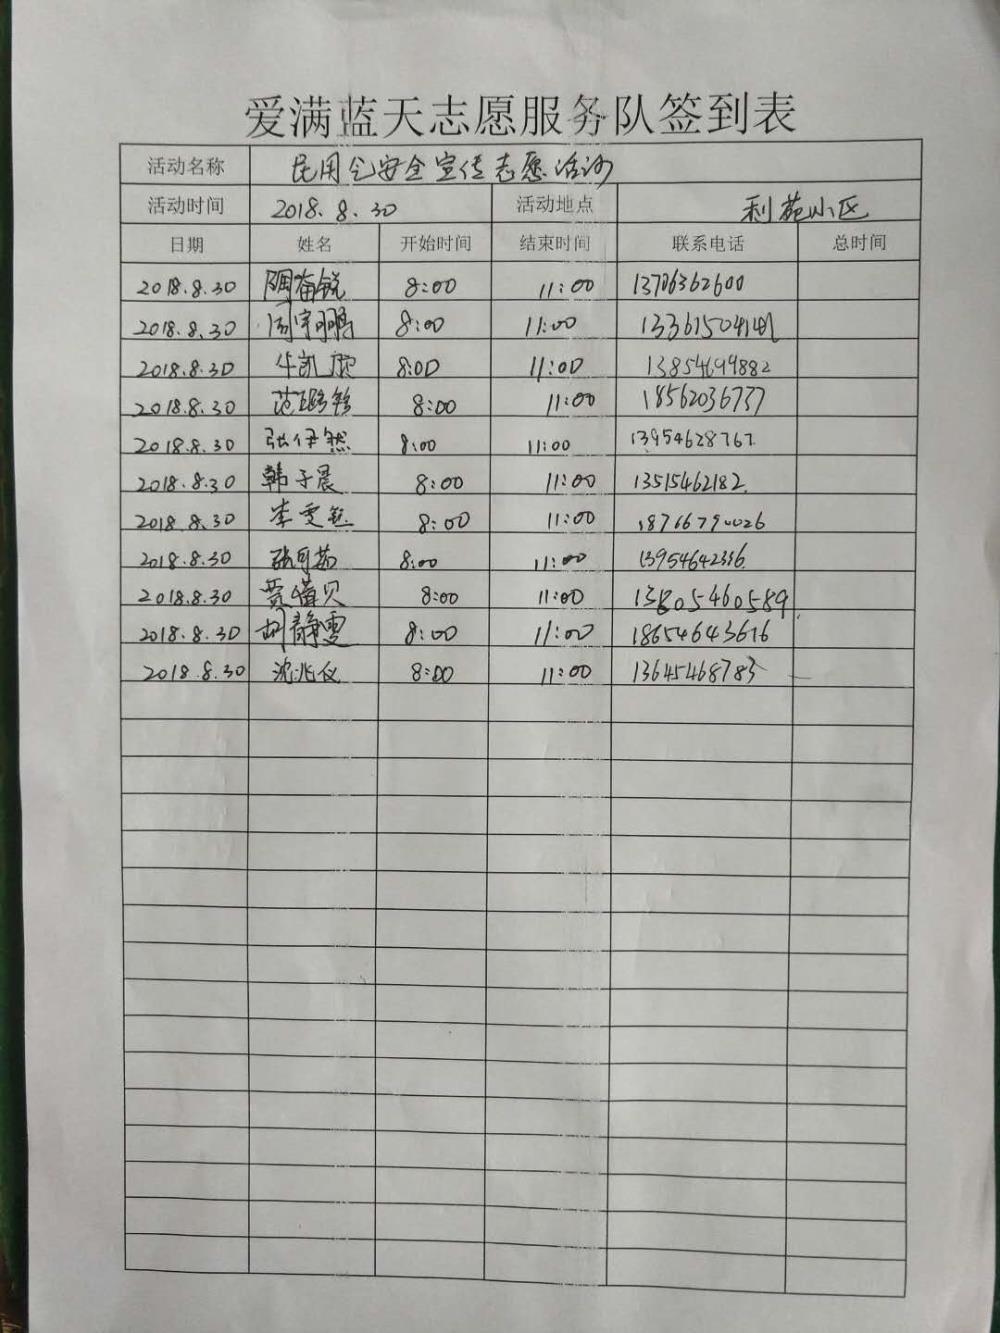 爱满蓝天志愿服务队签到表
活动名称 民用气安全宣传志愿活动
活动时间 2018.8.30 活动地点 利苑小区
日期 姓名 开始时间 结束时间 联系电话 总时间
2018.8.30 8:00 11:00 13706362600
2018.8.30 周宇鹏 8:00 11:00
2018.8.30 牛凯 8:00 11:00 13854694882
2018.8.30 范 8:00 11:00 18562036737
2018.8.30 张伊然 8:00 11:00 13954628767
2018.8.30 韩子晨 8:00 11:00 13515462182
2018.8.30 李雯 8:00 11:00 18766790026
2018.8.30 张可茹 8:00 11:00 13954642336
2018.8.30 贾 贝 8:00 11:00 13805460589
2018.8.30 胡静雯 8:00 11:00 18654643616
2018.8.30 沈兆仪 8:00 11:00 13645468783